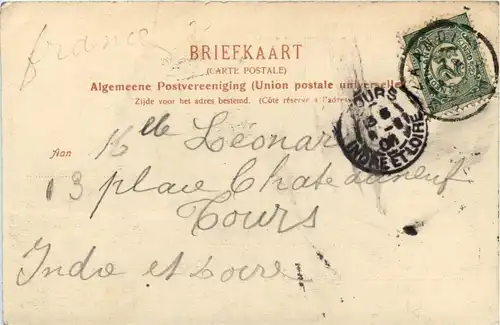 france
BRIEFKAART
(CARTE POSTALE)
Algemeene Postvereeniging (Union postale universelle)
Zijde voor het adres bestemd. (Côté réservé à l'adresse)
Aan Mlle Léonar
13 place Chateauneuf
Tours
Indre et Loire
TOURS
INDRE ET LOIRE